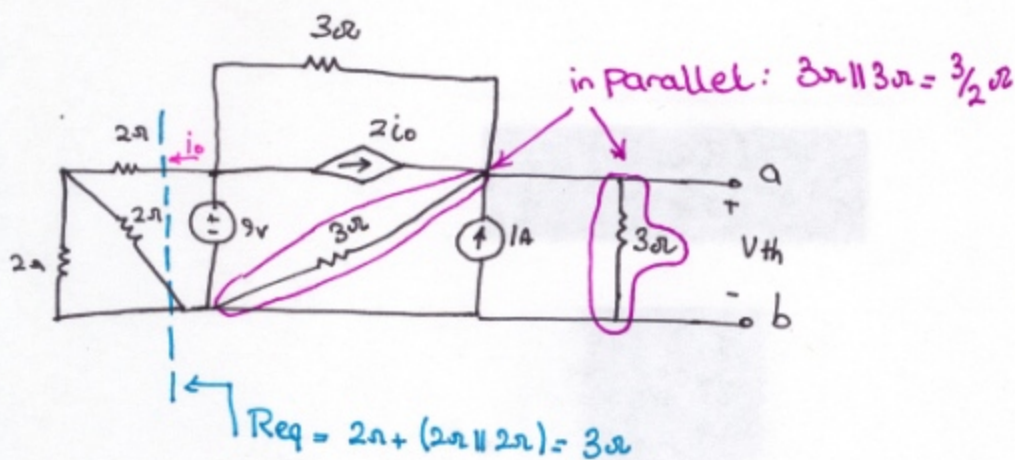 3Ω
in parallel: 3Ω||3Ω = 3/2 Ω
2Ω
i₀
2i₀
a
+
2Ω
9v
3Ω
1A
3Ω
Vth
2Ω
-
b
Req = 2Ω + (2Ω || 2Ω) = 3Ω